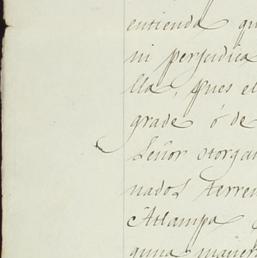 entienda qu
ni perjudica
lla, pues el
grade ó de
Señor otorga
nados terren
Atlampa
guna maner